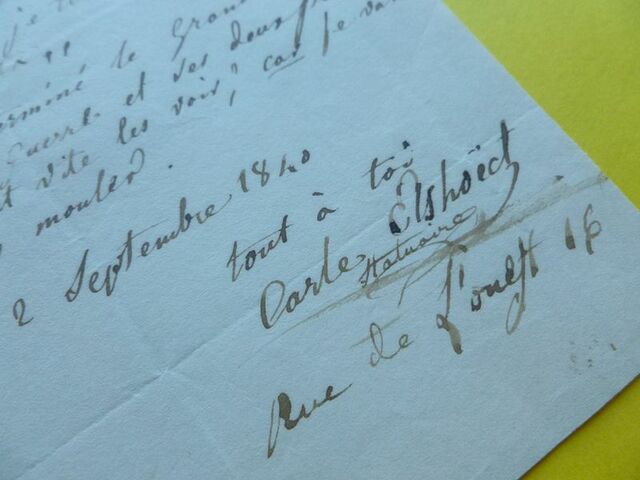 je
terminé le Grou
Guerre et ses deux
vite les voir, car je vai
mouler.
2 Septembre 1840
tout à toi
Carle Elshoëct
Statuaire
Rue de L'ouest 16